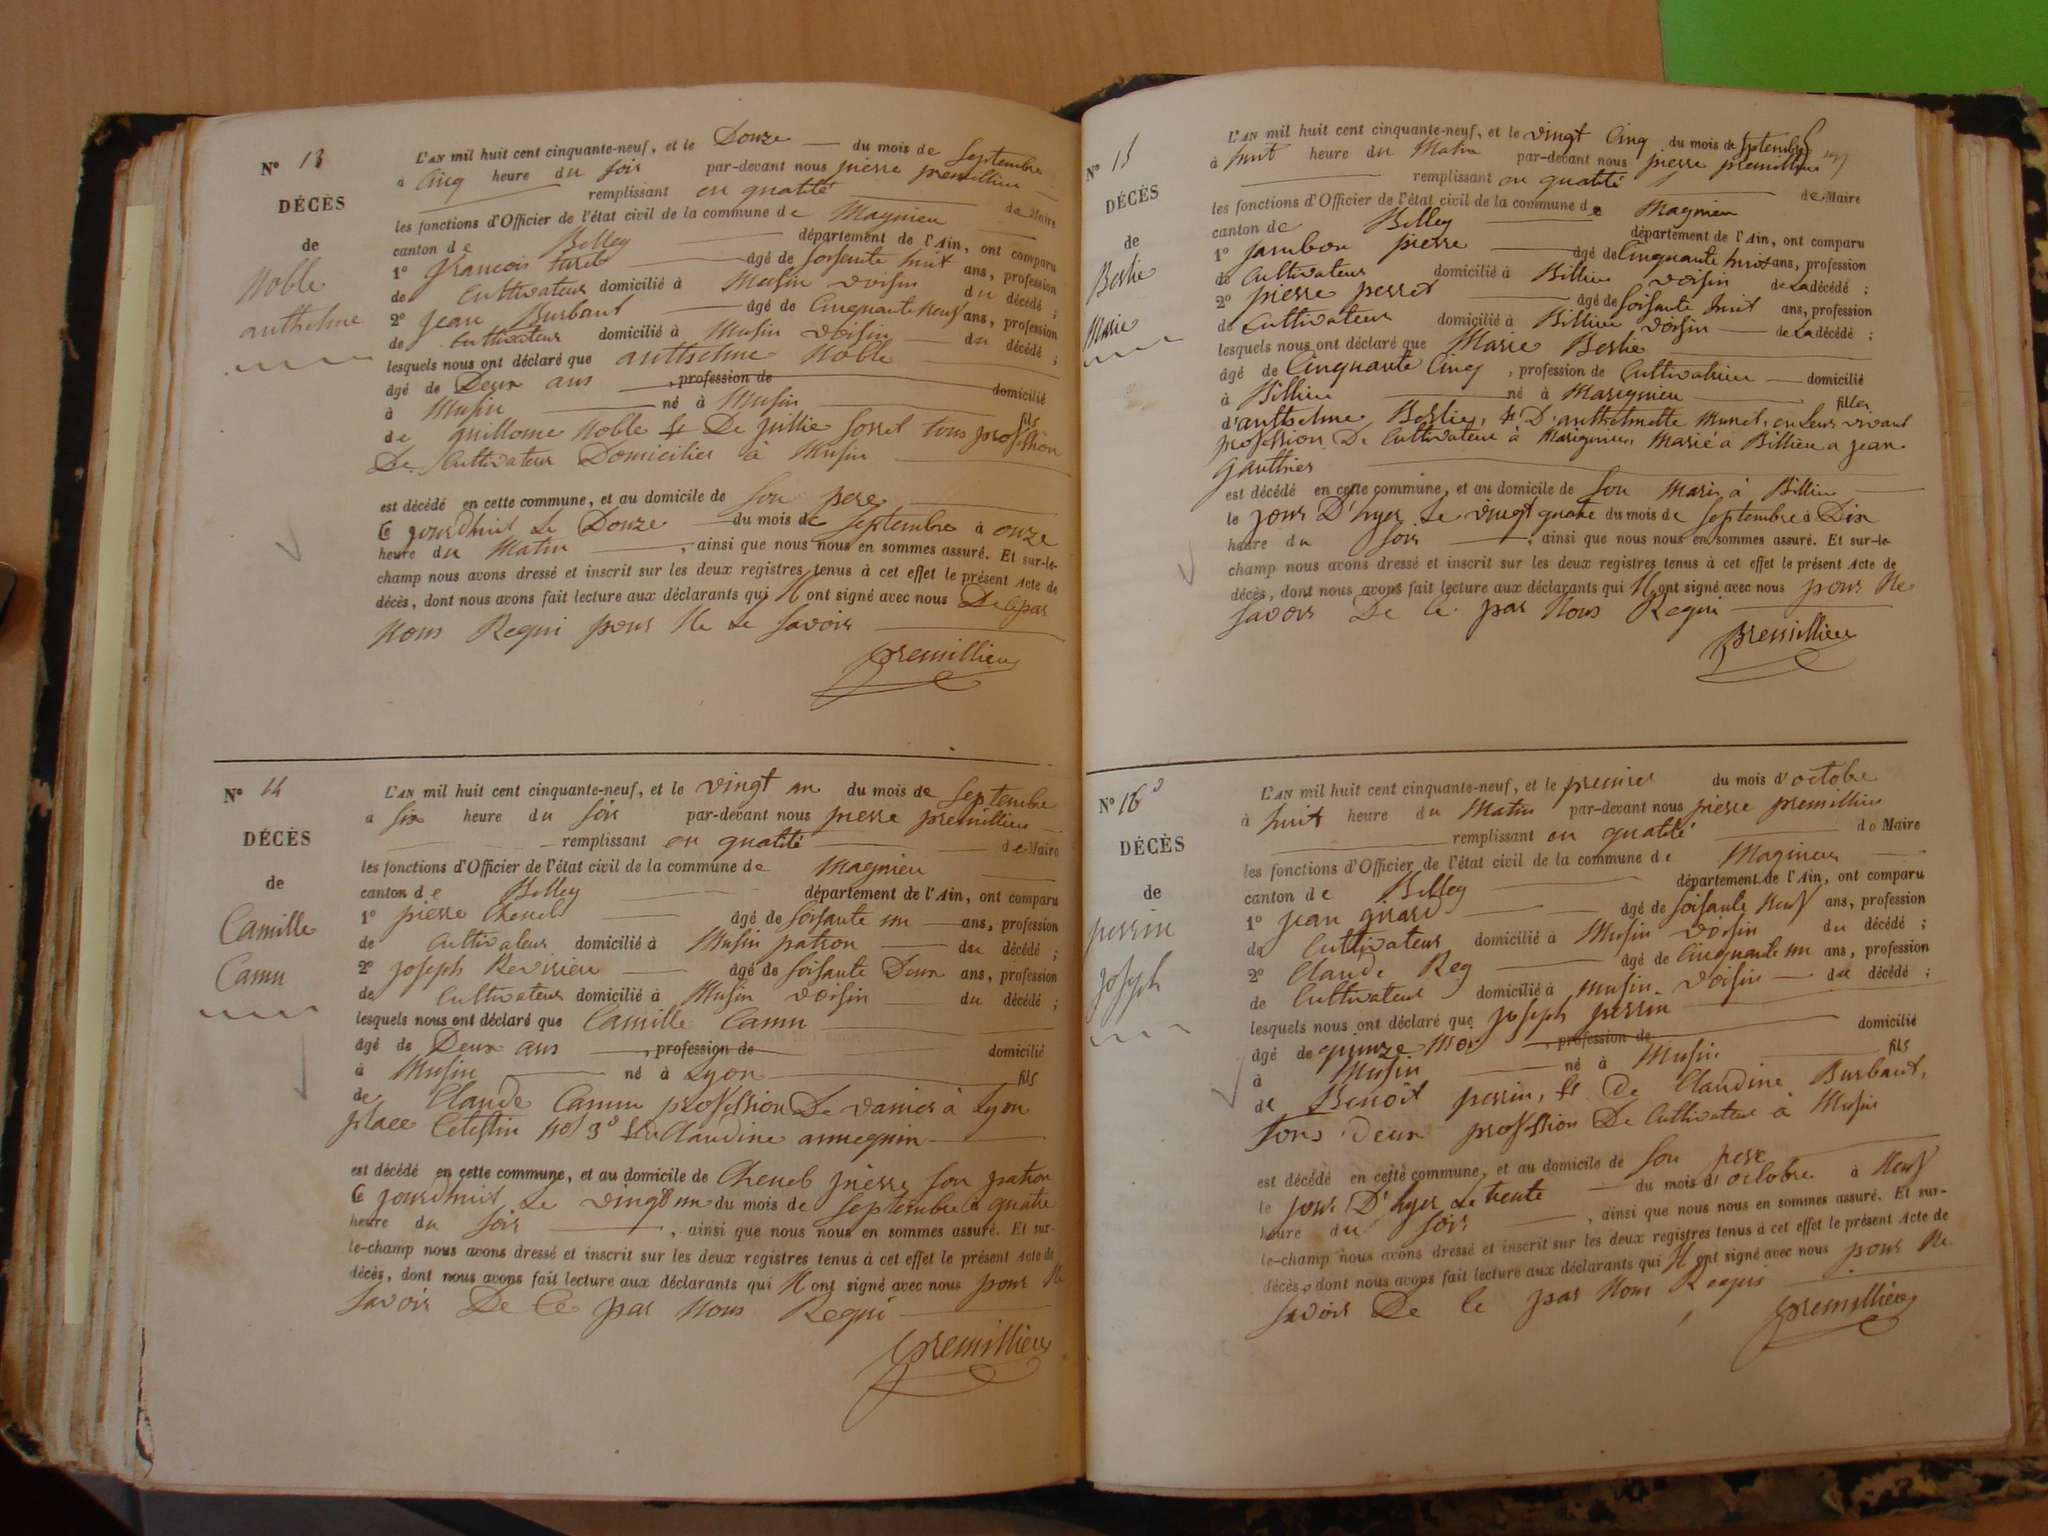 N° 13
DÉCÈS
de
Noble
anthelme
L'AN mil huit cent cinquante-neuf, et le Douze du mois de Septembre
à Cinq heure du soir par-devant nous pierre premillieu
remplissant en qualité de Maire
les fonctions d'Officier de l'état civil de la commune de Magnieu
canton de Belley département de l'Ain, ont comparu
1° francois âgé de soisante huit ans, profession
de Cultivateur domicilié à Musin voisin du décédé ;
2° Jean Burbant âgé de Cinquante neuf ans, profession
de Cultivateur domicilié à Musin voisin du décédé ;
lesquels nous ont déclaré que anthelme Noble
âgé de Deux ans , profession de domicilié
à Musin né à Musin fils
de guillome Noble & De jullie sorret tous profession
De Cultivateur Domicilies à Musin
est décédé en cette commune, et au domicile de son pere
Ce jourdhuit Le Douze du mois de Septembre à onze
heure du Matin , ainsi que nous nous en sommes assuré. Et sur-le-
champ nous avons dressé et inscrit sur les deux registres tenus à cet effet le présent Acte de
décès, dont nous avons fait lecture aux déclarants qui N ont signé avec nous De ce par
Nous Requi pour Ne Le savoir
premillieu
N° 14
DÉCÈS
de
Camille
Camu
L'AN mil huit cent cinquante-neuf, et le vingt un du mois de Septembre
à Six heure du soir par-devant nous pierre premillieu
remplissant en qualité de Maire
les fonctions d'Officier de l'état civil de la commune de Magnieu
canton de Belley département de l'Ain, ont comparu
1° pierre Cheneb âgé de soisante un ans, profession
de Cultivateur domicilié à Musin patron du décédé ;
2° joseph Revirieu âgé de soisante Deux ans, profession
de Cultivateur domicilié à Musin voisin du décédé ;
lesquels nous ont déclaré que Camille Camu
âgé de Deux ans , profession de domicilié
à Musin né à Lyon fils
de Claude Camu profession De vanier à Lyon
place Celestin No 3 Claudine annequin
est décédé en cette commune, et au domicile de Cheneb pierre son patron
Ce jourdhuit Le vingt un du mois de Septembre à quatre
heure du soir , ainsi que nous nous en sommes assuré. Et sur-
le-champ nous avons dressé et inscrit sur les deux registres tenus à cet effet le présent Acte de
décès, dont nous avons fait lecture aux déclarants qui N ont signé avec nous pour Ne
savoir De Ce par Nous Requi
premillieu
N° 15
DÉCÈS
de
Berlie
Marie
L'AN mil huit cent cinquante-neuf, et le vingt Cinq du mois de Septembre
à huit heure du Matin par-devant nous pierre premillieu
remplissant en qualité de Maire
les fonctions d'Officier de l'état civil de la commune de Magnieu
canton de Belley département de l'Ain, ont comparu
1° Jambon pierre âgé de Cinquante huit ans, profession
de Cultivateur domicilié à Billieu voisin de La décédé ;
2° pierre perret âgé de soisante huit ans, profession
de Cultivateur domicilié à Billieu voisin de La décédé ;
lesquels nous ont déclaré que Marie Berlie
âgé de Cinquante Cinq , profession de Cultivatrice domicilié
à Billieu né à Marignieu filles
d'anthelme Berlie, & D'anthelmette Murret, en Leurs vivant
profession De Cultivateur à Marignieu Marié a Billieu a jean
gauthier
est décédé en cette commune, et au domicile de son Mari à Billieu
le jour D'hyer Le vingt quatre du mois de Septembre à Dix
heure du soir , ainsi que nous nous en sommes assuré. Et sur-le-
champ nous avons dressé et inscrit sur les deux registres tenus à cet effet le présent Acte de
décès, dont nous avons fait lecture aux déclarants qui N ont signé avec nous pour Ne
savoir De Ce par Nous Requi
premillieu
N° 16
DÉCÈS
de
perrin
joseph
L'AN mil huit cent cinquante-neuf, et le premier du mois d'octobre
à huit heure du Matin par-devant nous pierre premillieu
remplissant en qualité de Maire
les fonctions d'Officier de l'état civil de la commune de Magnieu
canton de Belley département de l'Ain, ont comparu
1° jean girard âgé de soisante Neuf ans, profession
de Cultivateur domicilié à Musin voisin du décédé ;
2° Claude Rey âgé de Cinquante un ans, profession
de Cultivateur domicilié à Musin voisin du décédé ;
lesquels nous ont déclaré que joseph perrin
âgé de quinze Moi , profession de domicilié
à Musin né à Musin fils
de Benoit perrin, & de Claudine Burbant,
Tous Deux profession De Cultivateur à Musin
est décédé en cette commune, et au domicile de son pere
le jour D'hyer Le trente du mois d'octobre à Neuf
heure du soir , ainsi que nous nous en sommes assuré. Et sur-
le-champ nous avons dressé et inscrit sur les deux registres tenus à cet effet le présent Acte de
décès, dont nous avons fait lecture aux déclarants qui N ont signé avec nous pour Ne
savoir De Ce par Nous Requis
premillieu